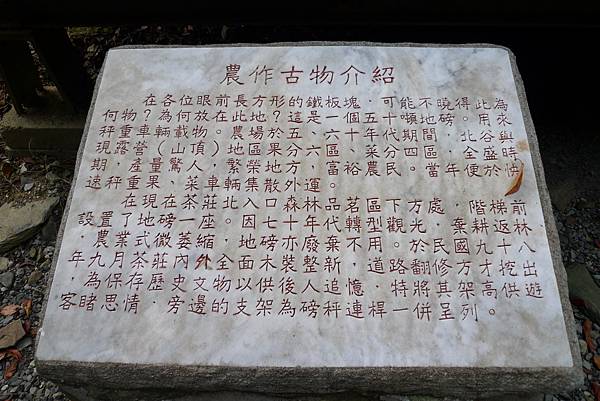 農作古物介紹
在各位眼前長方形的鐵板塊,可能不曉得。此為
何物?為何放在此地?這是一個五十噸地磅,用來
秤重車輛載物。農場於五、六十年代期間,北谷與
現露營(山頂)
期,產量驚人,繁榮地方、富裕農民。當年便於快
速秤重果、菜車輛集散外運。
在現在茶莊北入口森林品茗區下方處,階梯前
設置了地磅一座。因七十年代轉型觀光,棄耕返林
農業式微萎縮,地磅亦廢棄不用。於國民九十八
年,九月茶莊內外地面木裝整新道路翻修,才挖出
為保存歷史文物以供後人追憶,特將其架高供遊
客睹思情,旁邊的支架為磅秤連桿一併呈列。